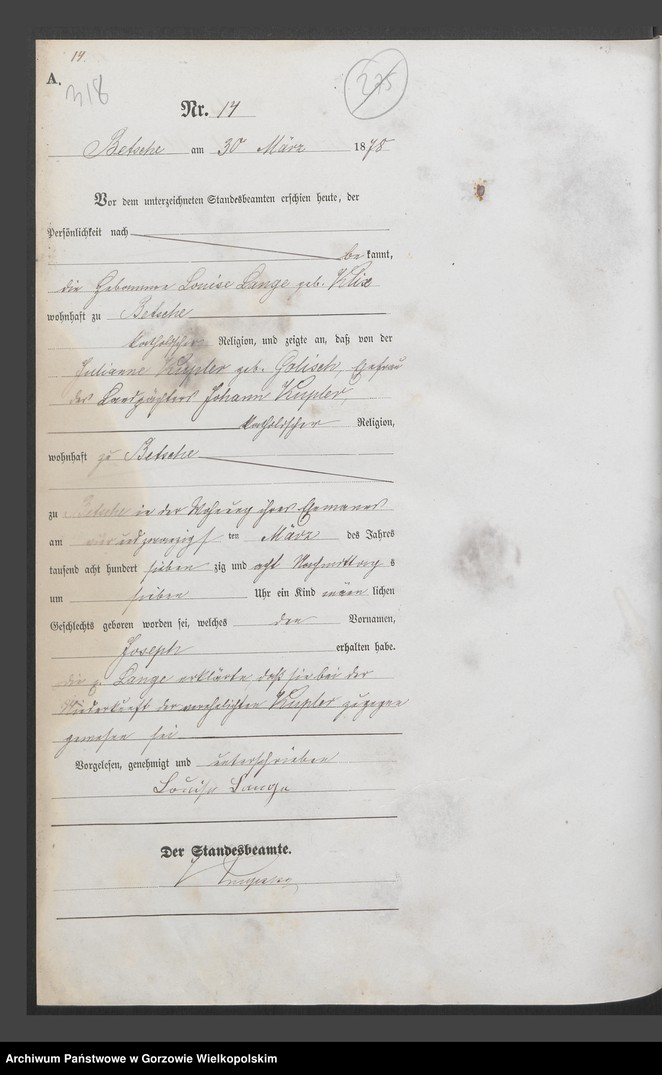 14.
A.
318
275
Nr. 14
Betsche am 30 März 1878
Vor dem unterzeichneten Standesbeamten erschien heute, der
Persönlichkeit nach
be kannt,
die Hebamme Louise Lange geb. Klix
wohnhaft zu Betsche
katholischer Religion, und zeigte an, daß von der
Julianne Kupler geb. Golisch, Ehefrau
des Landpächters Johann Kupler,
katholischer Religion,
wohnhaft zu Betsche
zu Betsche in der Wohnung ihres Ehemanns
am undzwanzigsten ten März des Jahres
tausend acht hundert sieben zig und acht Nachmittag s
um sieben Uhr ein Kind männ lichen
Geschlechts geboren worden sei, welches den Vornamen,
Joseph erhalten habe.
die p. Lange erklärte, daß sie bei der
Niederkunft der verehelichten Kupler zugegen
gewesen sei
Vorgelesen, genehmigt und unterschrieben
Louise Lange
Der Standesbeamte.
Archiwum Państwowe w Gorzowie Wielkopolskim